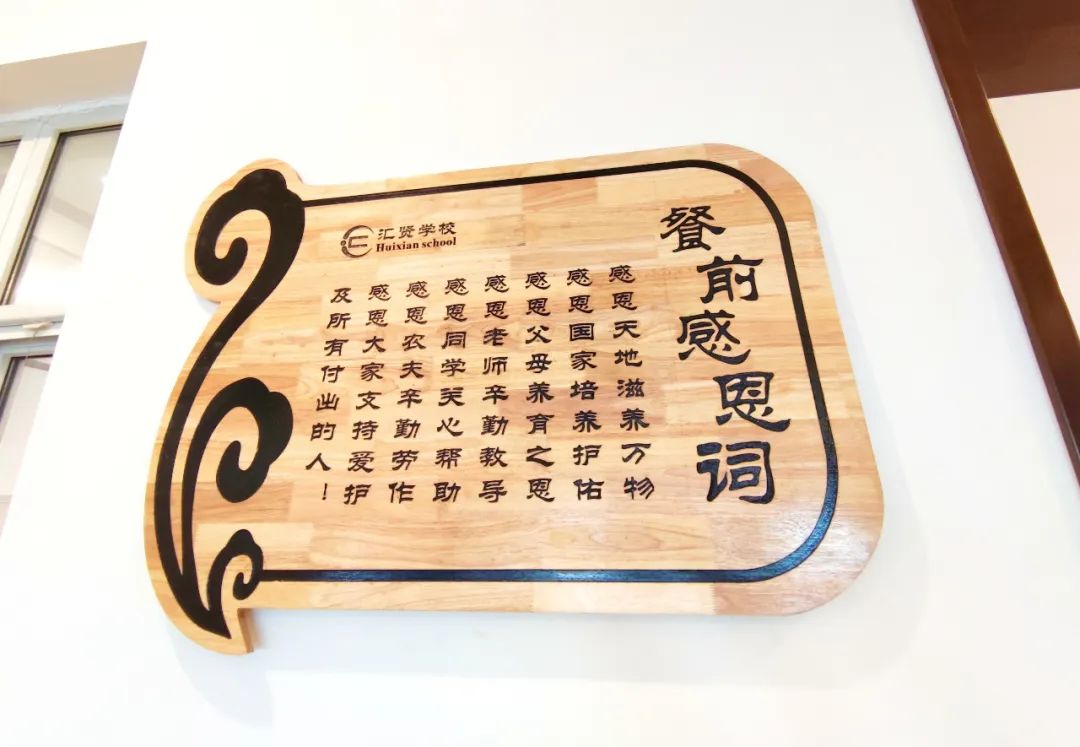 餐前感恩词
感恩天地滋养万物
感恩国家培养护佑
感恩父母养育之恩
感恩老师辛勤教导
感恩同学关心帮助
感恩农夫辛勤劳作
感恩大家支持爱护
及所有付出的人！
汇贤学校
Huixian school